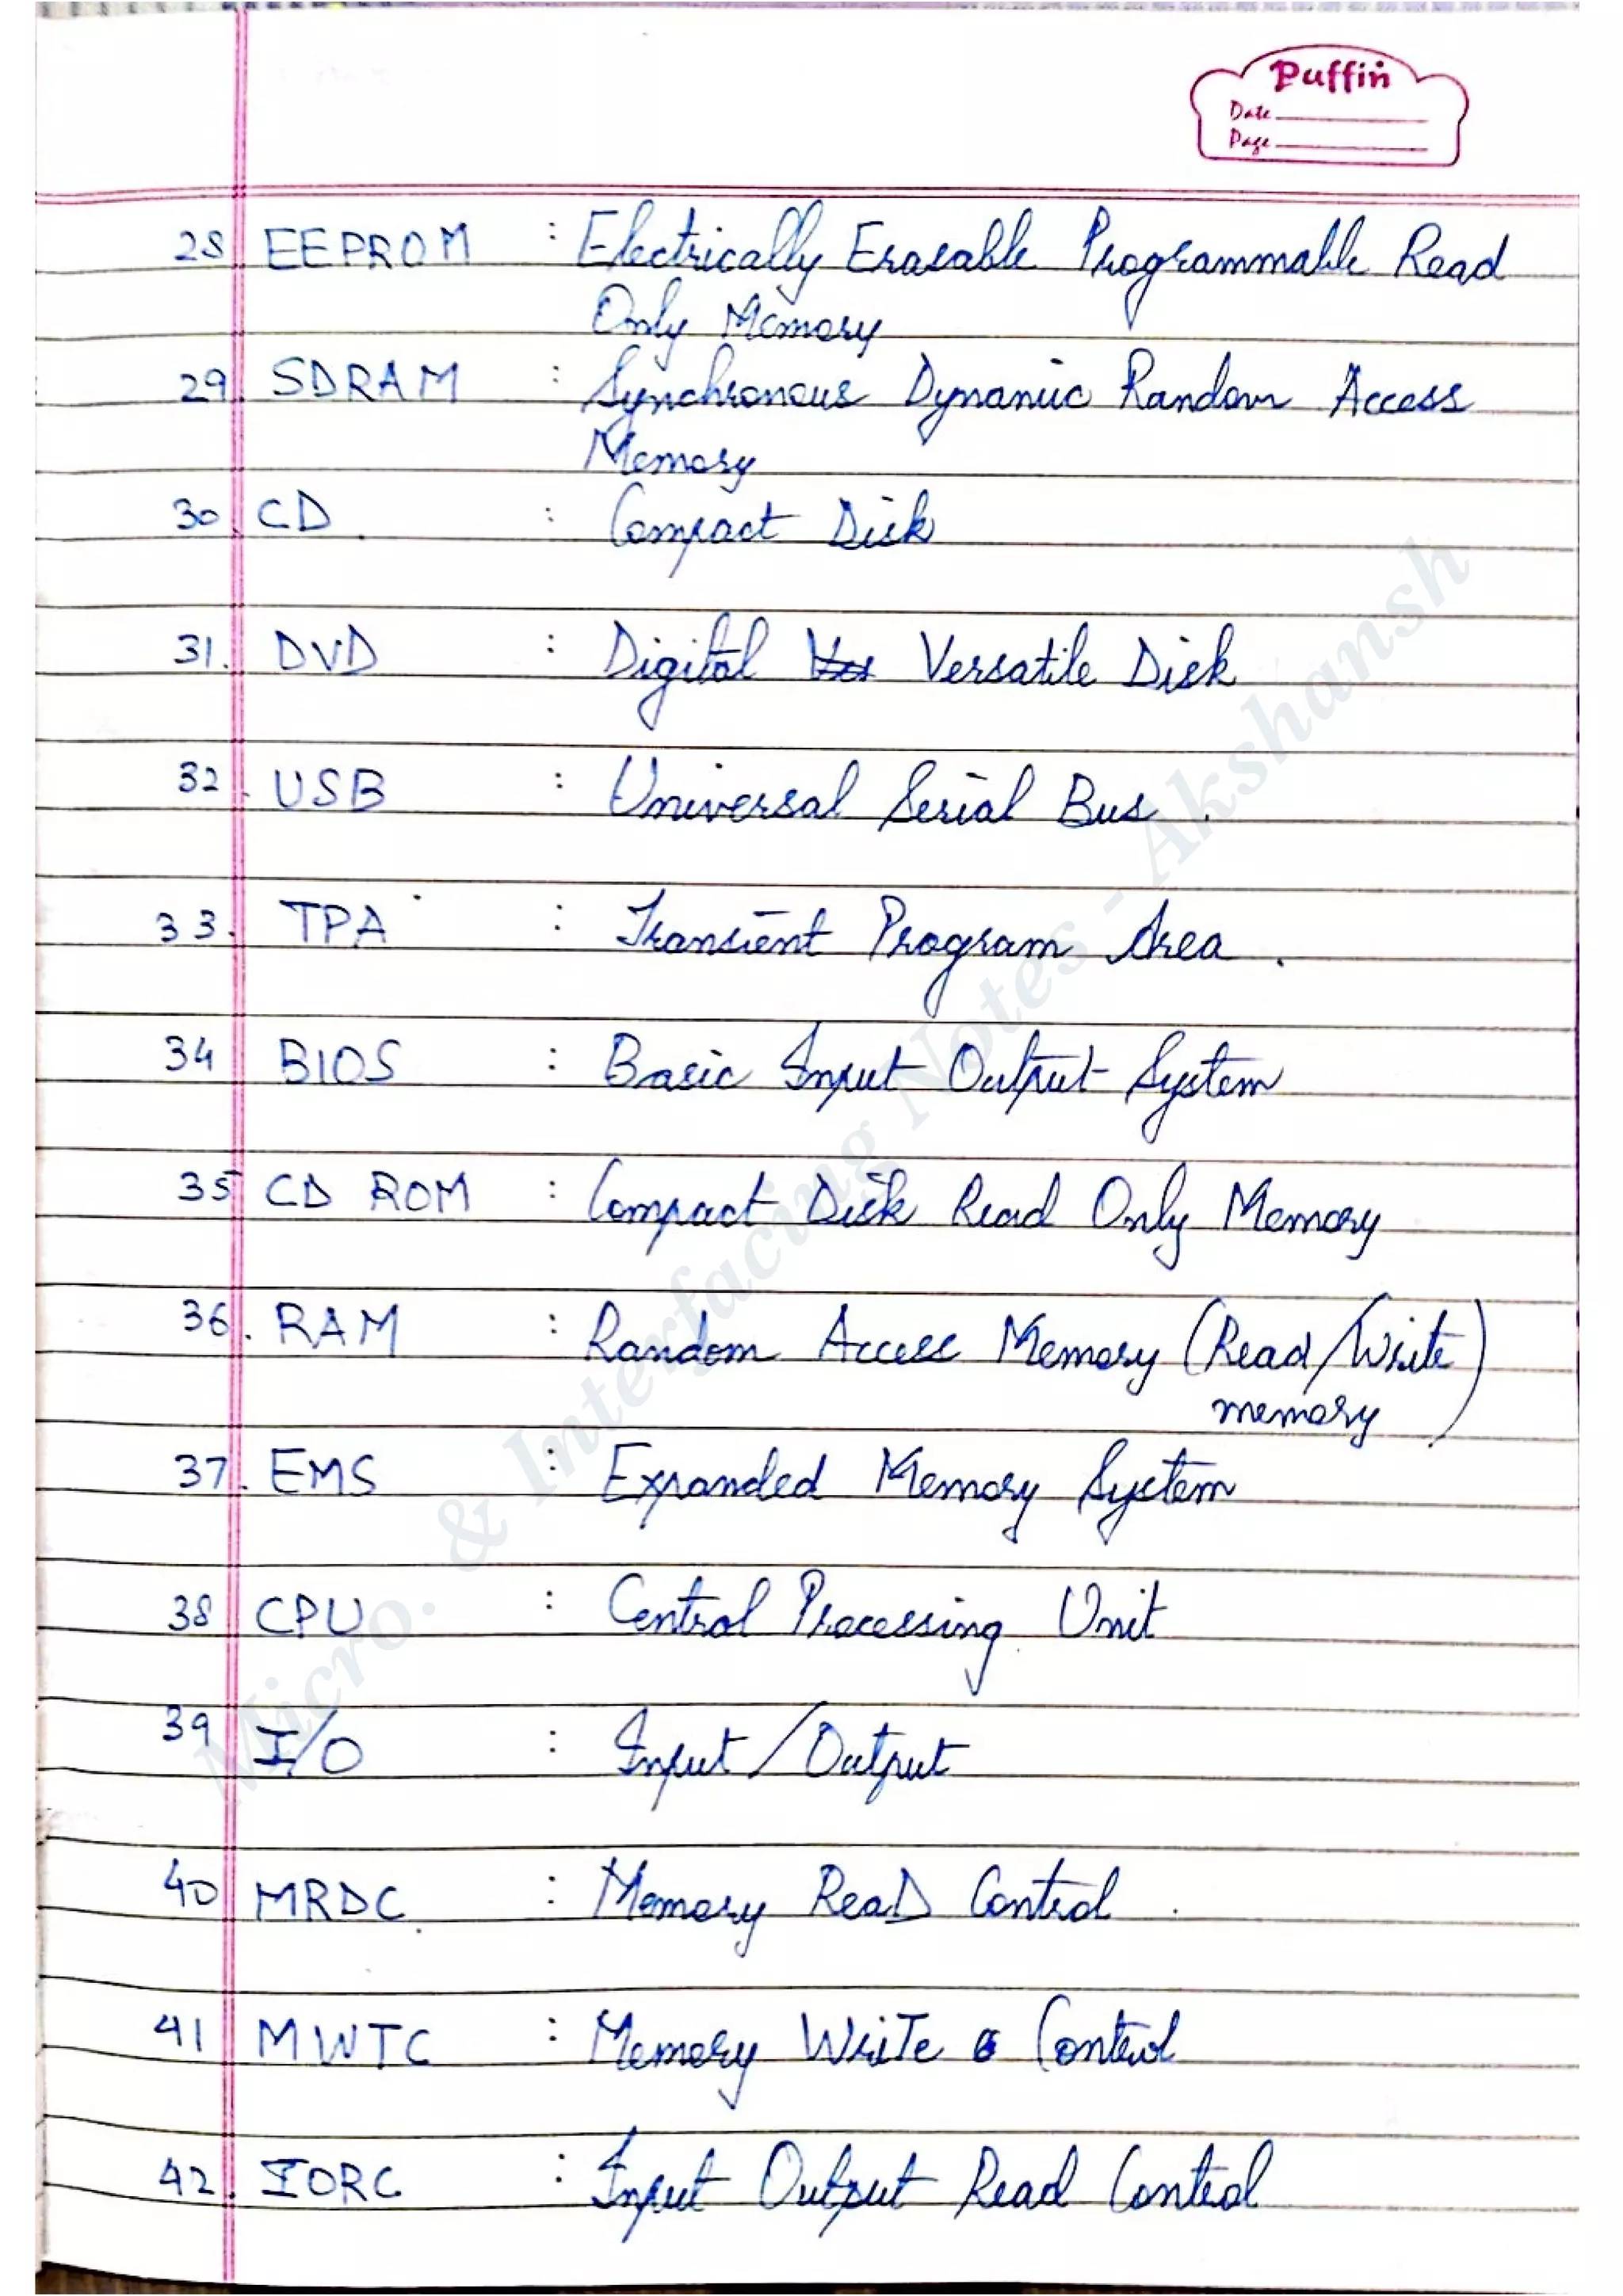 Puffin
Date
Page
28 EEPROM : Electrically Erasable Programmable Read
Only Memory
29 SDRAM : Synchronous Dynamic Random Access
Memory
30. CD : Compact Disk
31. DVD : Digital Versatile Disk
32. USB : Universal Serial Bus.
33. TPA : Transient Program Area.
34 BIOS : Basic Input Output System
35 CD ROM : Compact Disk Read Only Memory
36. RAM : Random Access Memory (Read/Write)
memory
37. EMS : Expanded Memory System
38 CPU : Central Processing Unit
39 I/O : Input/Output
40 MRDC : Memory ReaD Control.
41 MWTC : Memory WriTe Control
42. IORC : Input Output Read Control
Micro. & Interfacing Notes - Akshansh